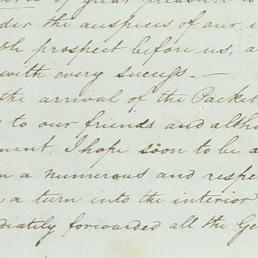 of great pleasure
der the auspices of our
ble prospect before us, a
with every success.—
the arrival of the Packet
to our friends and altho
ment, I hope soon to be a
n a numerous and respe
a turn into the interior
diately forwarded all the Ge